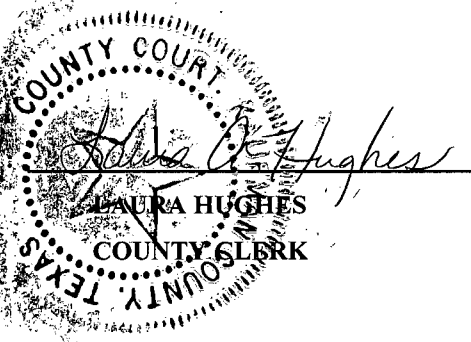 COUNTY COURT,
COUNTY, TEXAS
Laura A. Hughes
LAURA HUGHES
COUNTY CLERK